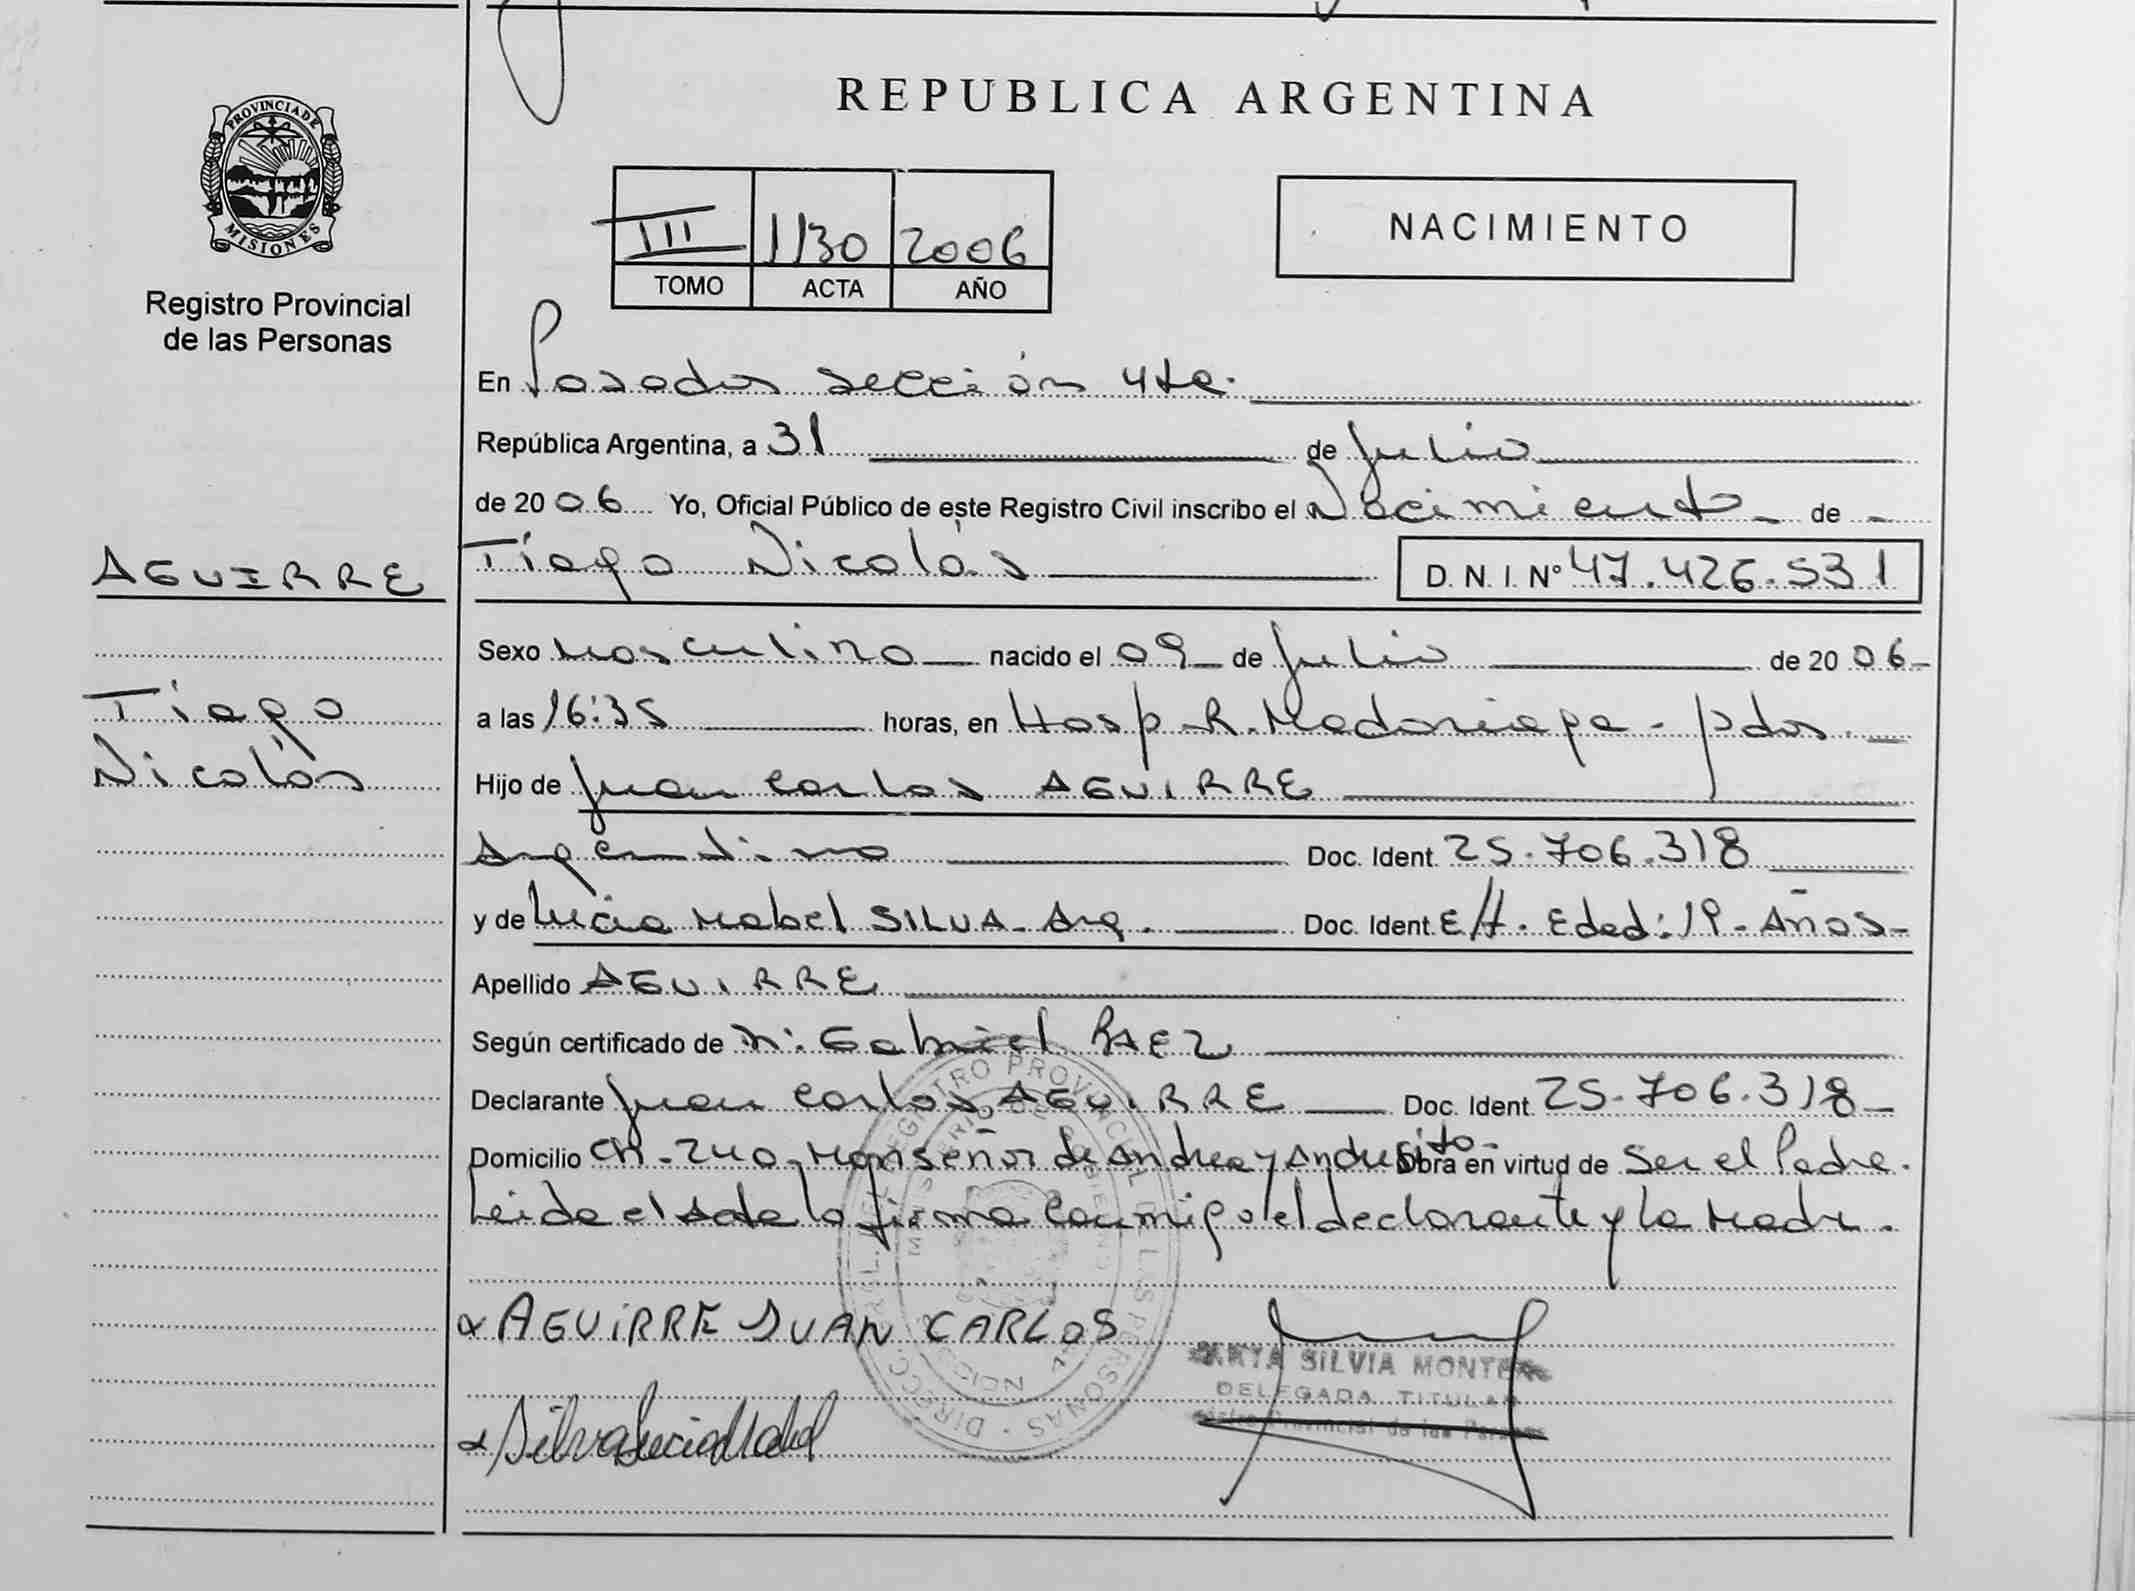 REPUBLICA ARGENTINA
PROVINCIA DE
MISIONES
Registro Provincial
de las Personas
III 1130 2006
TOMO ACTA AÑO
NACIMIENTO
En Posadas sección 4ta.
República Argentina, a 31 de Julio
de 20 06 Yo, Oficial Público de este Registro Civil inscribo el Nacimiento de
AGUIRRE
Tiago Nicolás D. N. I. Nº 47.426.531
Sexo Masculino nacido el 09 de Julio de 20 06
Tiago
Nicolás
a las 16:35 horas, en Hosp. R. Madariaga - Pdas.
Hijo de Juan Carlos AGUIRRE
Argentino Doc. Ident. 25.706.318
y de Lucia Mabel SILVA - Arg. Doc. Ident. E/t. Edad: 19 - Años -
Apellido AGUIRRE
Según certificado de Gabriel PAEZ
Declarante Juan Carlos AGUIRRE Doc. Ident. 25.706.318
Domicilio Ch. 240 - Monseñor de Andrea y Andresito - Obra en virtud de Ser el Padre.
Leida el Acta la firma conmigo el declarante y la Madre.
AGUIRRE JUAN CARLOS
SILVIA
DELEGADA TITULAR
Provincial de las
Silva Lucia Mabel
REGISTRO PROVINCIAL DE LAS PERSONAS